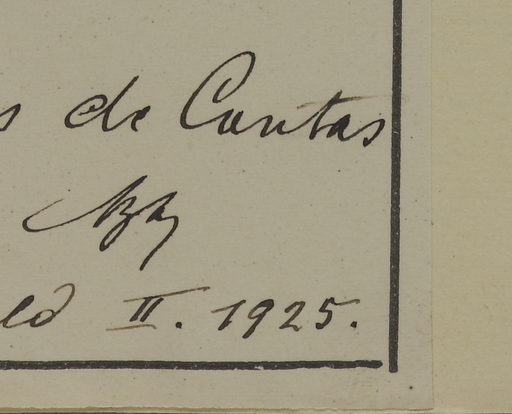 s de Contas
ld II. 1925.